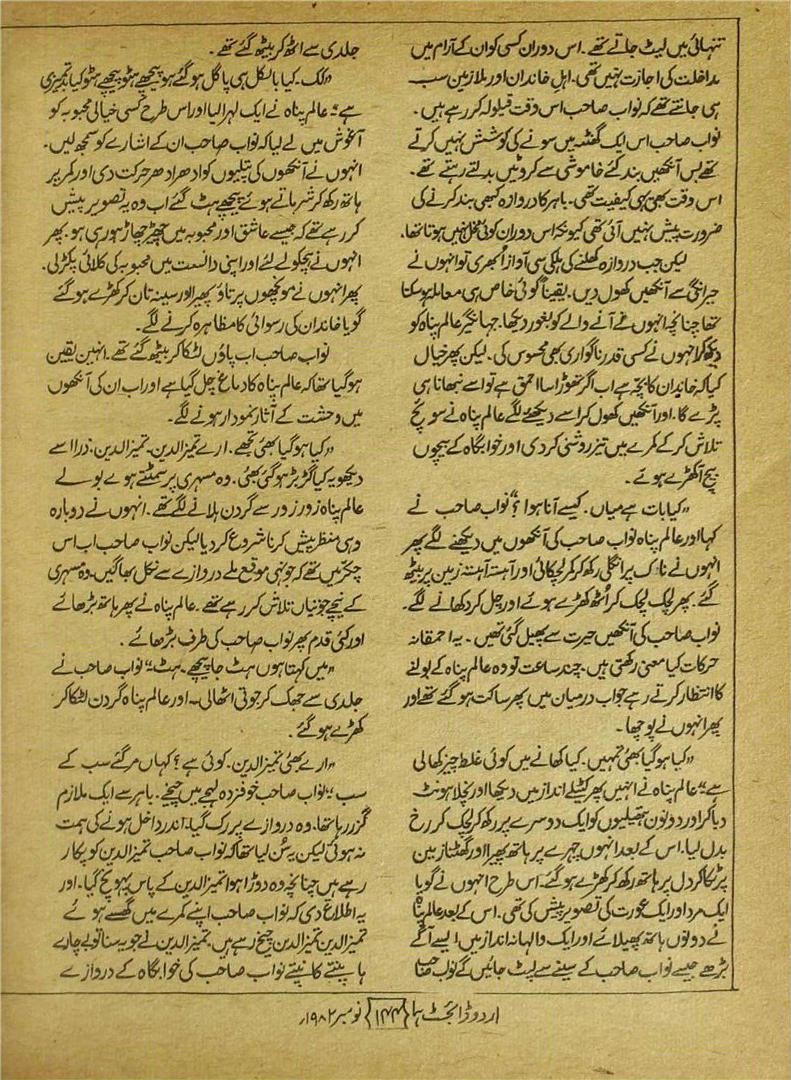 تنہائی میں لیٹ جاتے تھے۔ اس دوران کسی کو ان کے آرام میں
مداخلت کی اجازت نہیں تھی۔ اہلِ خاندان اور ملازمین سب
ہی جانتے تھے کہ نواب صاحب اس وقت قیلولہ کر رہے ہیں۔
نواب صاحب اس ایک گھنٹہ میں سونے کی کوشش نہیں کرتے
تھے بس آنکھیں بند کئے خاموشی سے کروٹیں بدلتے رہتے تھے۔
اس وقت بھی یہی کیفیت تھی۔ باہر کا دروازہ کبھی بند کرنے کی
ضرورت پیش نہیں آئی تھی کیونکہ اس دوران کوئی مخل نہیں ہوتا تھا۔
لیکن جب دروازہ کھلنے کی ہلکی سی آواز اُبھری تو انہوں نے
حیرانگی سے آنکھیں کھول دیں۔ یقیناً کوئی خاص ہی معاملہ ہو سکتا
تھا چنانچہ انہوں نے آنے والے کو بغور دیکھا۔ جہانگیر عالم پناہ کو
دیکھ کر انہوں نے کسی قدر ناگواری بھی محسوس کی۔ لیکن پھر خیال
کیا کہ خاندان کا بچہ ہے اب اگر تھوڑا سا احمق ہے تو اسے نبھانا ہی
پڑے گا۔ اور آنکھیں کھول کر اسے دیکھنے لگے عالم پناہ نے سوئچ
تلاش کر کے کمرے میں تیز روشنی کر دی اور خوابگاہ کے بیچوں
بیچ آ کھڑے ہوئے۔
”کیا بات ہے میاں۔ کیسے آنا ہوا؟“ نواب صاحب نے
کہا اور عالم پناہ نواب صاحب کی آنکھوں میں دیکھنے لگے پھر
انہوں نے ناک پر انگلی رکھ کر کمر لچکائی اور آہستہ آہستہ زمین پر بیٹھ
گئے۔ پھر لچک لچک کر اُٹھ کھڑے ہوئے اور چل کر دکھانے لگے۔
نواب صاحب کی آنکھیں حیرت سے پھیل گئی تھیں۔ یہ احمقانہ
حرکات کیا معنی رکھتی ہیں۔ چند ساعت تو وہ عالم پناہ کے بولنے
کا انتظار کرتے رہے جواب درمیان میں پھر ساکت ہو گئے تھے اور
پھر انہوں نے پوچھا۔
”کیا ہو گیا بھئی تمہیں۔ کیا کھانے میں کوئی غلط چیز کھا لی
ہے“ عالم پناہ نے انہیں پھر کٹیلے انداز میں دیکھا اور نچلا ہونٹ
دبا کر اور دونوں ہتھیلیوں کو ایک دوسرے پر رکھ کر لچک کر رخ
بدل لیا۔ اس کے بعد انہوں چہرے پر ہاتھ پھیرا اور گھٹنا زمین
پر ٹکا کر دل پر ہاتھ رکھ کر کھڑے ہو گئے۔ اس طرح انہوں نے گویا
ایک مرد اور ایک عورت کی تصویر پیش کی تھی۔ اس کے بعد عالم پناہ
نے دونوں ہاتھ پھیلائے اور ایک والہانہ انداز میں ایسے آگے
بڑھے جیسے نواب صاحب کے سینے سے لپٹ جائیں گے نواب صاحب
جلدی سے اٹھ کر بیٹھ گئے تھے۔
”لک۔ کیا بالکل ہی پاگل ہو گئے ہو پیچھے ہٹو پیچھے ہٹو کیا بدتمیزی
ہے“ عالم پناہ نے ایک لہرا لیا اور اس طرح کسی خیالی محبوبہ کو
آغوش میں لے لیا کہ نواب صاحب ان کے اشارے کو سمجھ لیں۔
انہوں نے آنکھوں کی پتلیوں کو ادھر ادھر حرکت دی اور کمر پر
ہاتھ رکھ کر شرماتے ہوئے پیچھے ہٹ گئے اب وہ یہ تصویر پیش
کر رہے تھے کہ جیسے عاشق اور محبوبہ میں چھیڑ چھاڑ ہو رہی ہو۔ پھر
انہوں نے ہچکولے لئے اور اپنی دانست میں محبوبہ کی کلائی پکڑ لی۔
پھر انہوں نے مونچھوں پر تاؤ پھیرا اور سینہ تان کر کھڑے ہو گئے
گویا خاندان کی رسوائی کا مظاہرہ کرنے لگے۔
نواب صاحب اب پاؤں لٹکا کر بیٹھ گئے تھے۔ انہیں یقین
ہو گیا تھا کہ عالم پناہ کا دماغ چل گیا ہے اور اب ان کی آنکھوں
میں وحشت کے آثار نمودار ہونے لگے۔
”کیا ہو گیا بھئی تجھے۔ ارے تمیز الدین۔ تمیز الدین۔ ذرا اسے
دیکھو یہ کیا گڑبڑ ہو گئی بھئی۔ وہ مسہری پر سمٹتے ہوے بولے
عالم پناہ زور زور سے گردن ہلانے لگے تھے۔ انہوں نے دوبارہ
وہی منظر پیش کرنا شروع کر دیا لیکن نواب صاحب اب اس
چکر میں تھے کہ جونہی موقع ملے دروازے سے نکل بھاگیں۔ وہ مسہری
کے نیچے جوتیاں تلاش کر رہے تھے۔ عالم پناہ نے پھر ہاتھ بڑھائے
اور کئی قدم پھر نواب صاحب کی طرف بڑھائے۔
”میں کہتا ہوں ہٹ جا پیچھے۔ ہٹ“ نواب صاحب نے
جلدی سے جھک کر جوتی اٹھالی۔ اور عالم پناہ گردن لٹکا کر
کھڑے ہو گئے۔
”ارے بھئی تمیز الدین۔ کوئی ہے؟ کہاں مر گئے سب کے
سب“ نواب صاحب خوفزدہ لہجے میں چیخے۔ باہر سے ایک ملازم
گزر رہا تھا۔ وہ دروازے پر رک گیا۔ اندر داخل ہونے کی ہمت
نہ ہوئی لیکن یہ سُن لیا تھا کہ نواب صاحب تمیز الدین کو پکار
رہے ہیں چنانچہ وہ دوڑا ہوا تمیز الدین کے پاس پہونچ گیا۔ اور
یہ اطلاع دی کہ نواب صاحب اپنے کمرے میں گھسے ہوئے
تمیز الدین تمیز الدین چیخ رہے ہیں۔ تمیز الدین نے جو یہ سنا تو بے چارے
ہانپتے کانپتے نواب صاحب کی خوابگاہ کے دروازے
اردو ڈائجسٹ ہما ۱۴۴ نومبر ۱۹۸۲ء